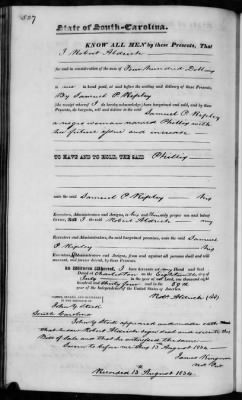 527
State of South-Carolina.
KNOW ALL MEN by these Presents, That
I Robert Aldrich
for and in consideration of the sum of Four Hundred Dollars
to me in hand paid, at and before the sealing and delivery of these Presents,
By Samuel P. Ripley
(the receipt whereof I do hereby acknowledge) have bargained and sold, and by these
Presents, do bargain, sell and deliver to the said Samuel P. Ripley
a negro woman named Phillis with
her future issue and increase
TO HAVE AND TO HOLD, THE SAID Phillis
unto the said Samuel P. Ripley his
Executors, Administrators and Assigns, to his and their only proper use and behoof
forever. And I the said Robert Aldrich my
Executors and Administrators, the said bargained premises, unto the said Samuel
P. Ripley his
Executors, Administrators and Assigns, from and against all persons shall and will
warrant, and forever defend, by these Presents.
IN WITNESS WHEREOF, I have hereunto set my Hand and Seal
Dated at Charleston on the Eighteenth day of
July in the year of our Lord, one thousand eight
hundred and thirty four and in the 59th
year of the Independence of the United States of America.
SIGNED, SEALED AND DELIVERED
IN THE PRESENCE OF
Robt Aldrich
South Carolina
appeared and made oath
that he saw Robert Aldrich sign seal and execute this
Bill of Sale and that he witnessed the same
Sworn to before me Aug 13th 1834
James Kingman
Not Pub
Recorded 13th August 1834.